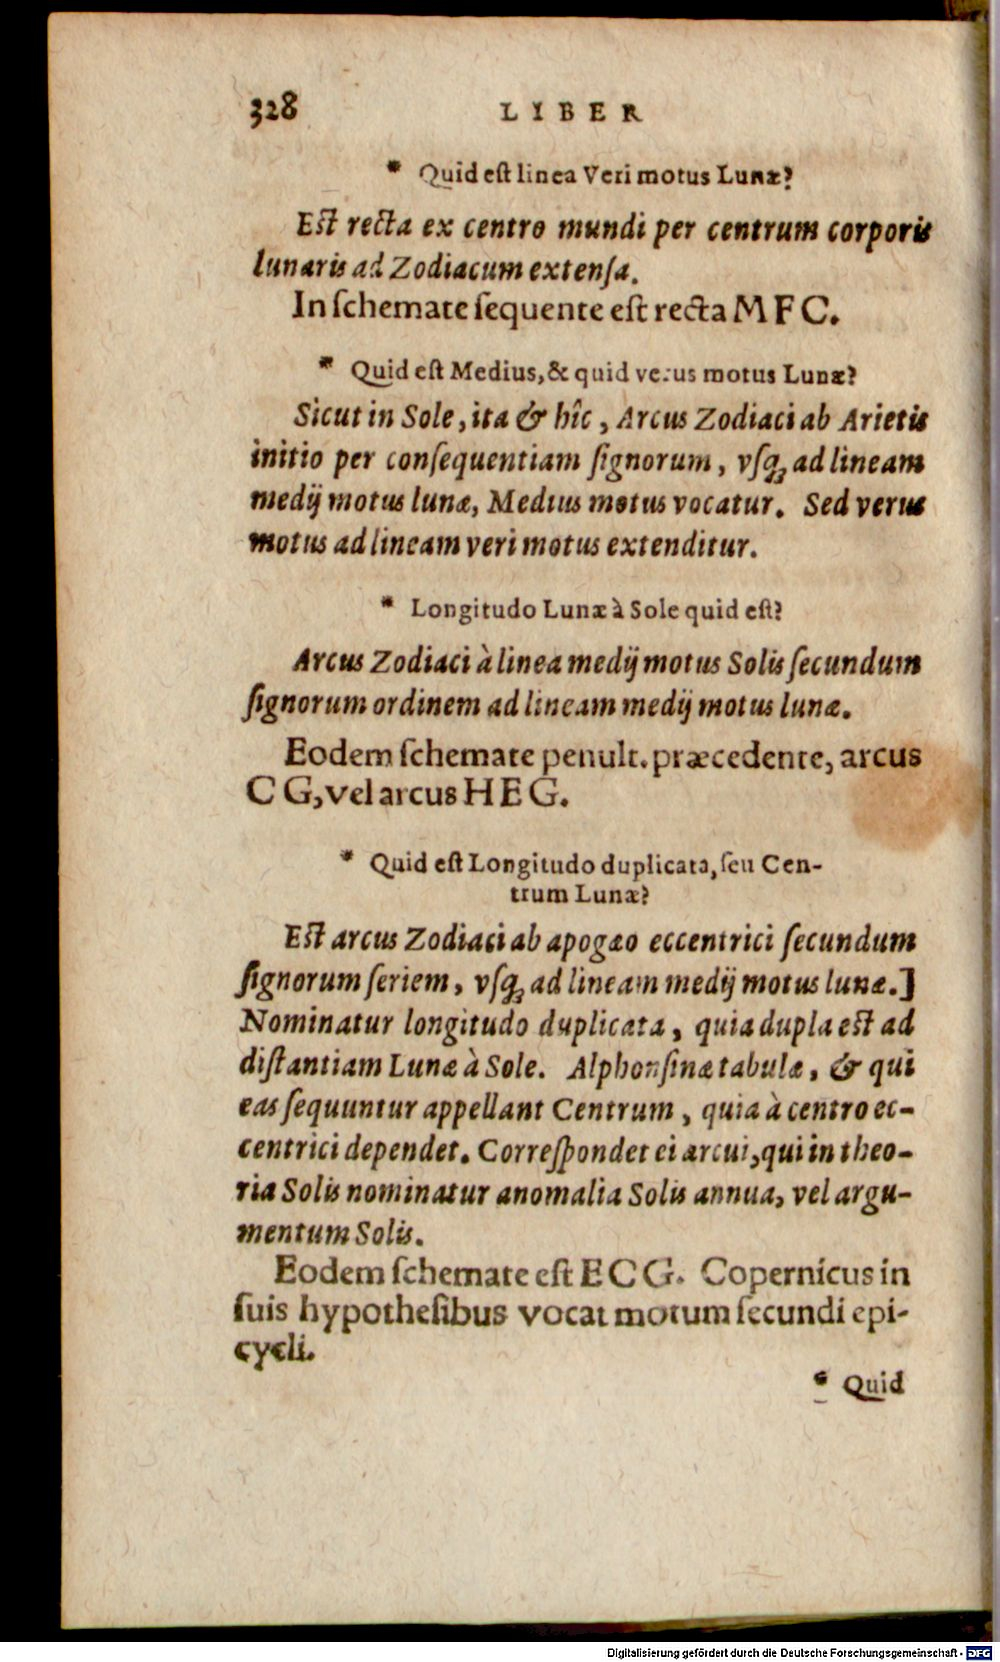 328 LIBER
* Quid eſt linea Veri motus Lunæ?
Eſt recta ex centro mundi per centrum corporis
lunaris ad Zodiacum extenſa.
In ſchemate ſequente eſt recta M F C.
* Quid eſt Medius, & quid verus motus Lunæ?
Sicut in Sole, ita & hîc, Arcus Zodiaci ab Arietis
initio per conſequentiam ſignorum, vſq́ꝫ ad lineam
medij motus lunæ, Medius motus vocatur. Sed verus
motus ad lineam veri motus extenditur.
* Longitudo Lunæ à Sole quid eſt?
Arcus Zodiaci à linea medij motus Solis ſecundum
ſignorum ordinem ad lineam medij motus lunæ.
Eodem ſchemate penult. præcedente, arcus
C G, vel arcus H E G.
* Quid eſt Longitudo duplicata, ſeu Cen-
trum Lunæ?
Eſt arcus Zodiaci ab apogæo eccentrici ſecundum
ſignorum ſeriem, vſq́ꝫ ad lineam medij motus lunæ.]
Nominatur longitudo duplicata, quia dupla eſt ad
diſtantiam Lunæ à Sole. Alphonſinæ tabulæ, & qui
eas ſequuntur appellant Centrum, quia à centro ec-
centrici dependet. Correſpondet ei arcui, qui in theo-
ria Solis nominatur anomalia Solis annua, vel argu-
mentum Solis.
Eodem ſchemate eſt E C G. Copernicus in
ſuis hypotheſibus vocat motum ſecundi epi-
cycli.
* Quid
Digitalisierung gefördert durch die Deutsche Forschungsgemeinschaft - DFG